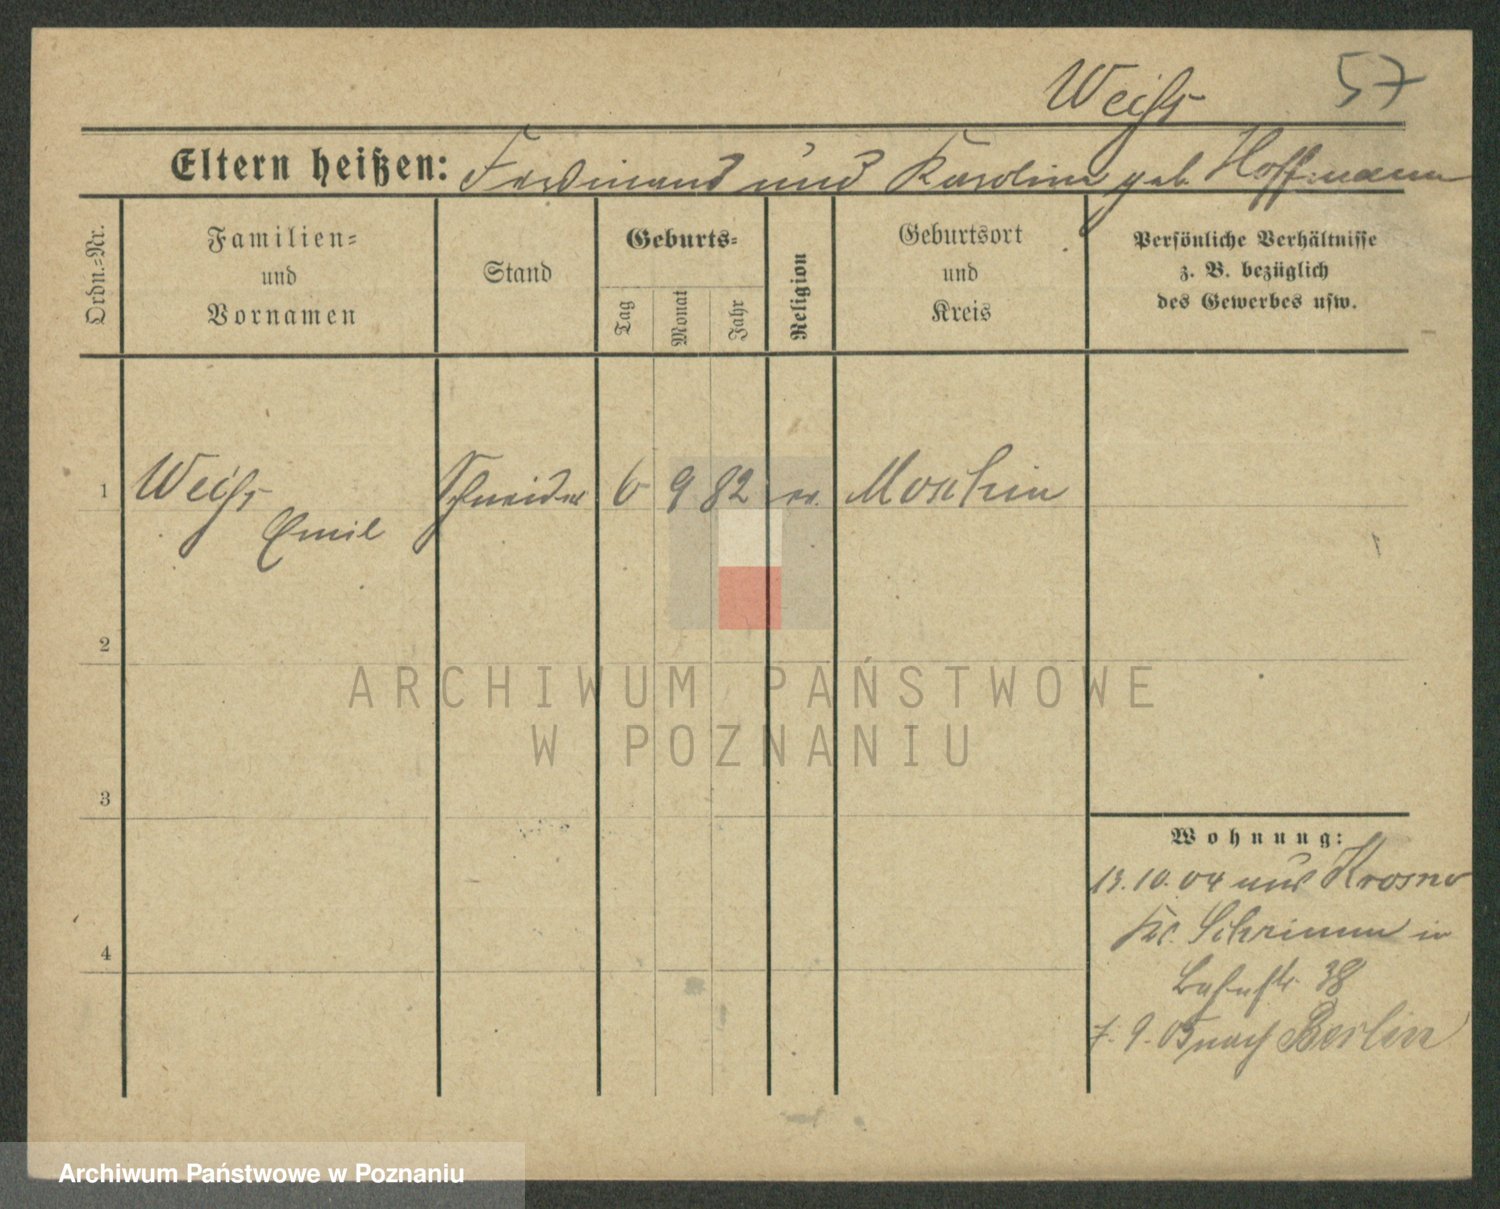 Weiß 57
Eltern heißen: Ferdinand und Karoline geb. Hoffmann
Ordn.-Nr.
Familien-
und
Vornamen
Stand
Geburts-
Tag
Monat
Jahr
Religion
Geburtsort
und
Kreis
Persönliche Verhältnisse
z. B. bezüglich
des Gewerbes usw.
1 Weiß Schneider 6 9 82 ev. Moschin
Emil
2
3
4
Wohnung:
13.10.04 aus Krosno
Kr. Schrimm in
Bahnstr. 38
7.9.05 nach Berlin
ARCHIWUM PAŃSTWOWE
W POZNANIU
Archiwum Państwowe w Poznaniu